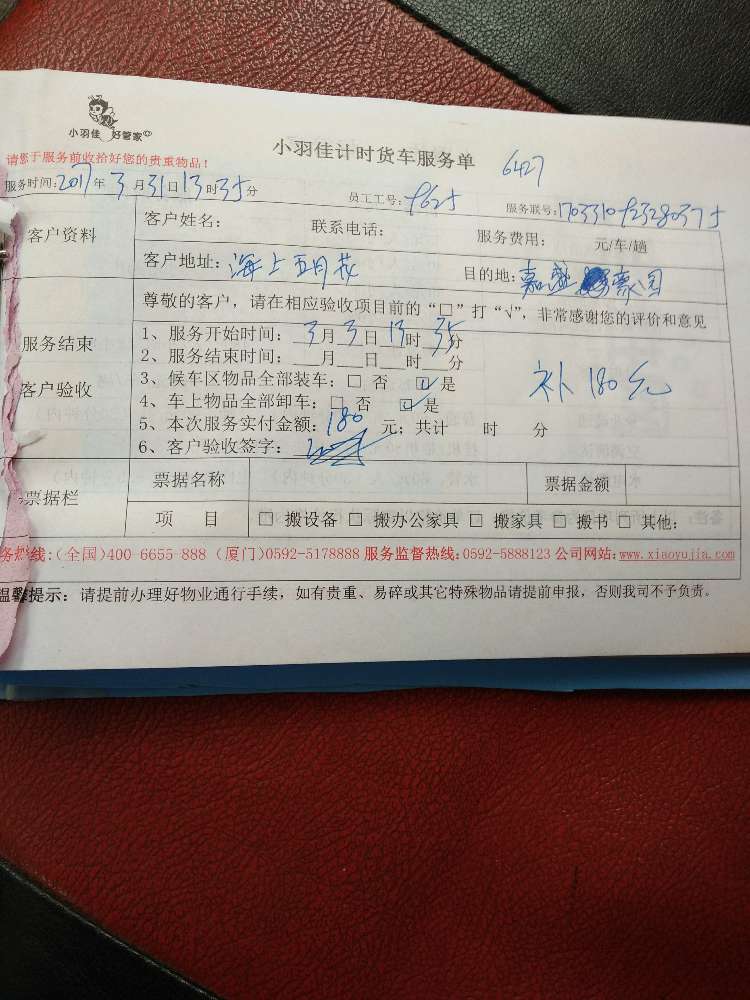 小羽佳 好管家
小羽佳计时货车服务单
6427
请您于服务前收拾好您的贵重物品!
服务时间:2017年3月31日13时35分 员工工号:9625 服务联号:1703310923280375
客户资料
客户姓名: 联系电话: 服务费用: 元/车/趟
客户地址:海上五月花 目的地:嘉盛豪园
尊敬的客户，请在相应验收项目前的“□”打“√”，非常感谢您的评价和意见
服务结束
客户验收
1、服务开始时间:3月3日13时35分
2、服务结束时间:__月__日__时__分
3、候车区物品全部装车:□ 否 ☑是
4、车上物品全部卸车:□ 否 ☑是
5、本次服务实付金额:180 元;共计 时 分
6、客户验收签字:
补180元
票据栏
票据名称 票据金额
项 目 □ 搬设备 □ 搬办公家具 □ 搬家具 □ 搬书 □ 其他:
务热线:(全国)400-6655-888 (厦门)0592-5178888 服务监督热线:0592-5888123 公司网站:www.xiaoyujia.com
温馨提示: 请提前办理好物业通行手续，如有贵重、易碎或其它特殊物品请提前申报，否则我司不予负责。